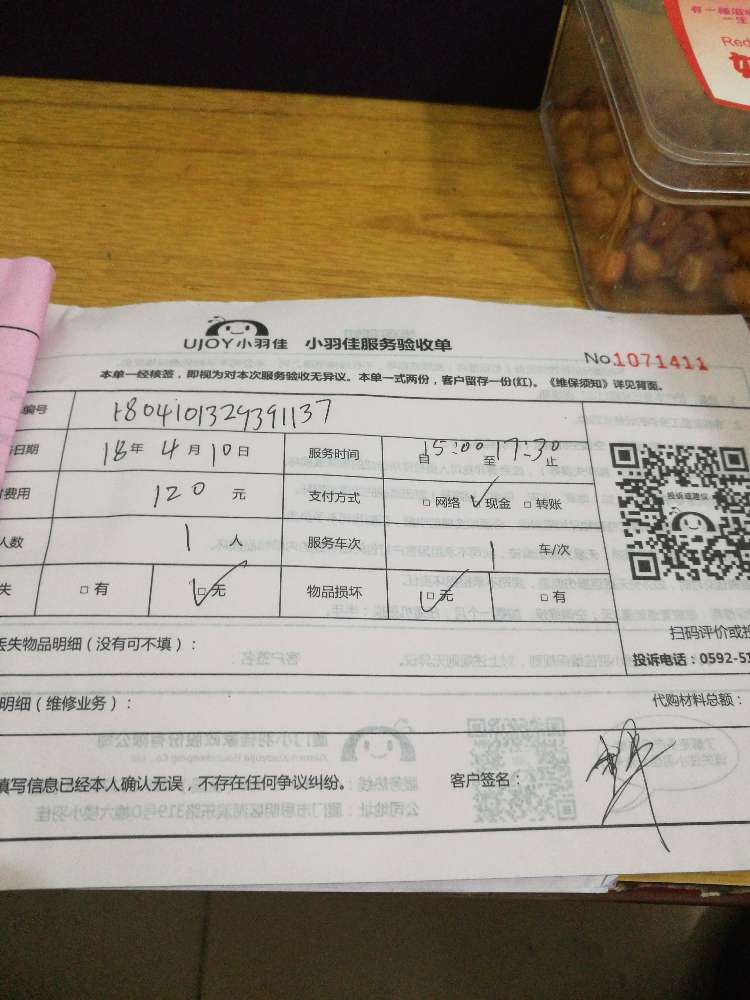 有一种滋味
一生
Red
UJOY小羽佳 小羽佳服务验收单
No 1071411
本单一经核签，即视为对本次服务验收无异议。本单一式两份，客户留存一份(红)。《维保须知》详见背面。
编号 1804101329391137
日期 18年 4月 10日 服务时间 自15:00至17:30止
费用 120 元 支付方式 □网络 ✓现金 □转账
人数 1 人 服务车次 1 车/次
失 □有 ☑无 物品损坏 ☑无 □有
投诉或建议
丢失物品明细（没有可不填）：
扫码评价或投
投诉电话：0592-51
明细（维修业务）：
代购材料总额：
填写信息已经本人确认无误，不存在任何争议纠纷。 客户签名：